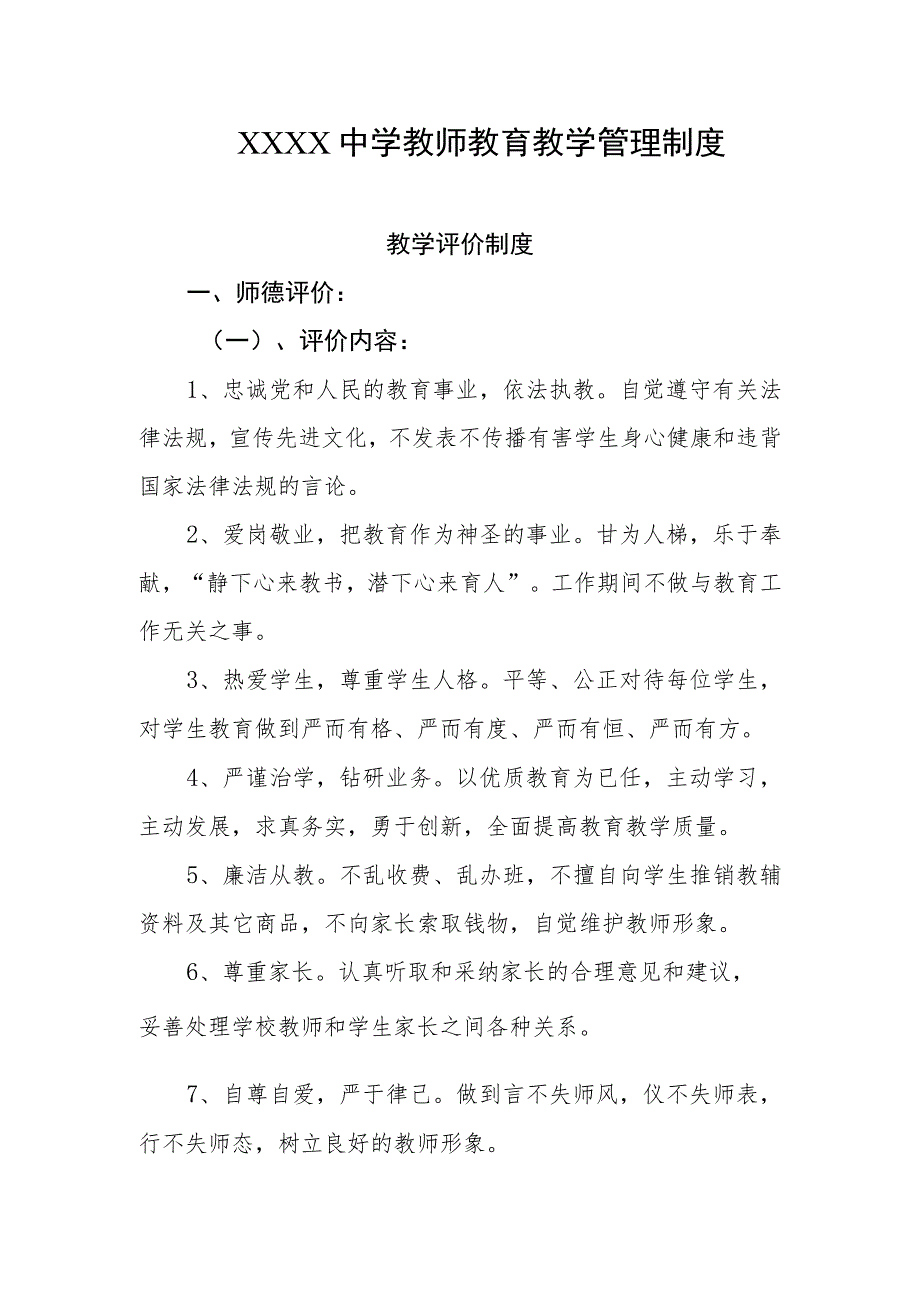 XXXX 中学教师教育教学管理制度
教学评价制度
一、师德评价：
（一）、评价内容：
1、忠诚党和人民的教育事业，依法执教。自觉遵守有关法
律法规，宣传先进文化，不发表不传播有害学生身心健康和违背
国家法律法规的言论。
2、爱岗敬业，把教育作为神圣的事业。甘为人梯，乐于奉
献，“静下心来教书，潜下心来育人”。工作期间不做与教育工
作无关之事。
3、热爱学生，尊重学生人格。平等、公正对待每位学生，
对学生教育做到严而有格、严而有度、严而有恒、严而有方。
4、严谨治学，钻研业务。以优质教育为已任，主动学习，
主动发展，求真务实，勇于创新，全面提高教育教学质量。
5、廉洁从教。不乱收费、乱办班，不擅自向学生推销教辅
资料及其它商品，不向家长索取钱物，自觉维护教师形象。
6、尊重家长。认真听取和采纳家长的合理意见和建议，
妥善处理学校教师和学生家长之间各种关系。
7、自尊自爱，严于律己。做到言不失师风，仪不失师表，
行不失师态，树立良好的教师形象。